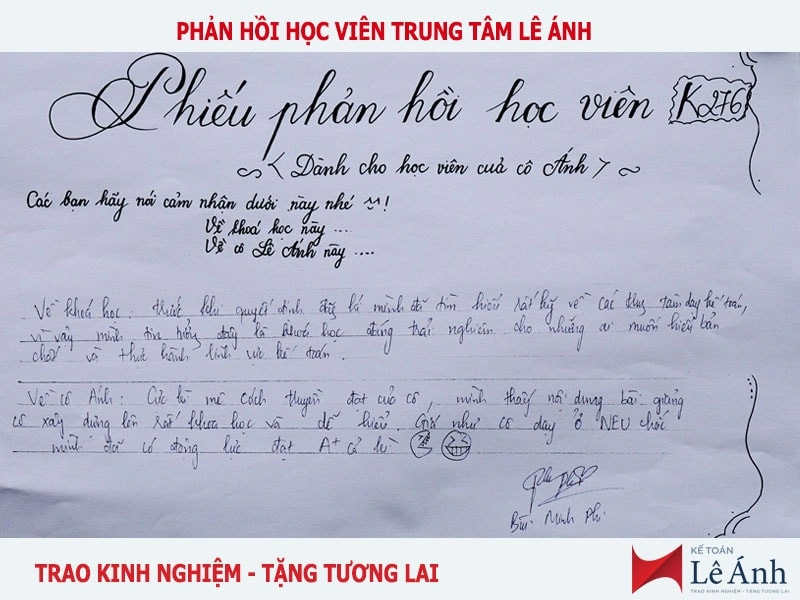 PHẢN HỒI HỌC VIÊN TRUNG TÂM LÊ ÁNH
Phiếu phản hồi học viên K276
< Dành cho học viên cuả cô Ánh >
Các bạn hãy nói cảm nhận dưới này nhé ^^!
Về khoá học này ....
Về cô Lê Ánh này ....
Về khoá học: trước khi quyết định đăng kí mình đã tìm hiểu rất kỹ về các trung tâm dạy kế toán,
vì vậy mình tin tưởng đây là khoá học đáng trải nghiệm cho những ai muốn hiểu bản
chất và thực hành lĩnh vực kế toán.
Về cô Ánh: Cực kì mê cách truyền đạt của cô, mình thấy nội dung bài giảng
cô xây dựng lên rất khoa học và dễ hiểu. Giá như cô dạy ở NEU chắc
mình đã có động lực đạt A+ cả kì
Bùi Minh Phi
TRAO KINH NGHIỆM - TẶNG TƯƠNG LAI
KẾ TOÁN
Lê Ánh
TRAO KINH NGHIỆM - TẶNG TƯƠNG LAI